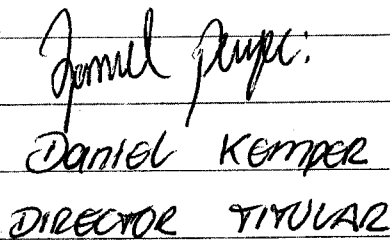 Daniel Kemper
DIRECTOR TITULAR